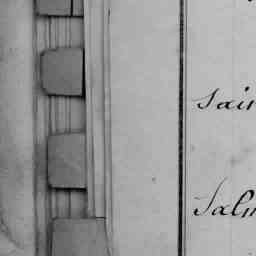 Sain
Salm